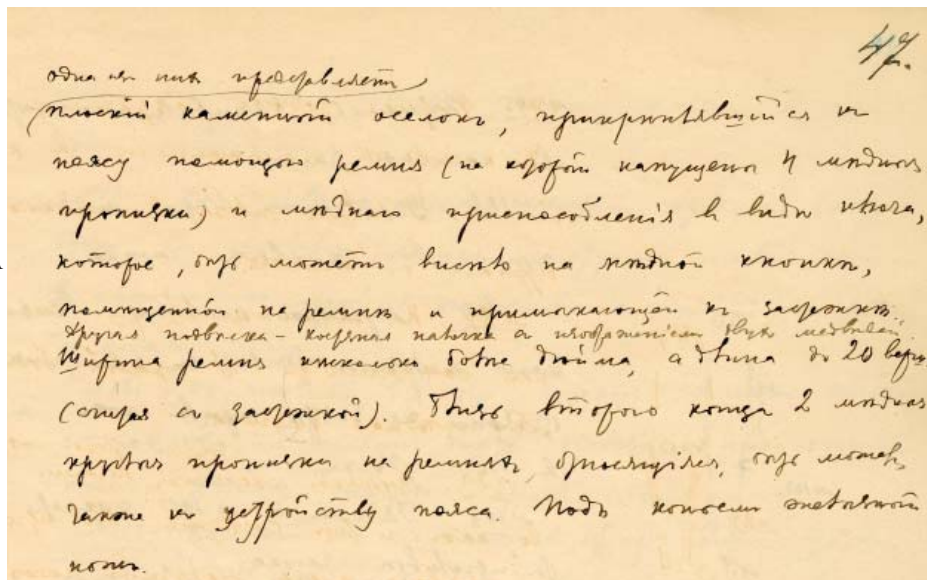 47.
одна изъ нихъ представляетъ
плоскій каменный оселокъ, прикрѣплявшійся къ
поясу помощью ремня (на который напущены 4 мѣдныя
пронизки) и мѣднаго приспособленія в видѣ
которое, быть можетъ висѣло на мѣдной кнопкѣ,
помѣщенной на ремнѣ и примыкающей къ застежкѣ.
Другая подвѣска - костяная палочка съ изображеніемъ двухъ медвѣдей
Ширина ремня нѣсколько болѣе дюйма, а длина до 20 верш.
(считая съ застежкой). Близъ второго конца 2 мѣдныя
круглыя пронизки на ремняхъ, относящіяся, быть можетъ,
также къ устройству пояса. Подъ копьемъ желѣзный
ножъ.